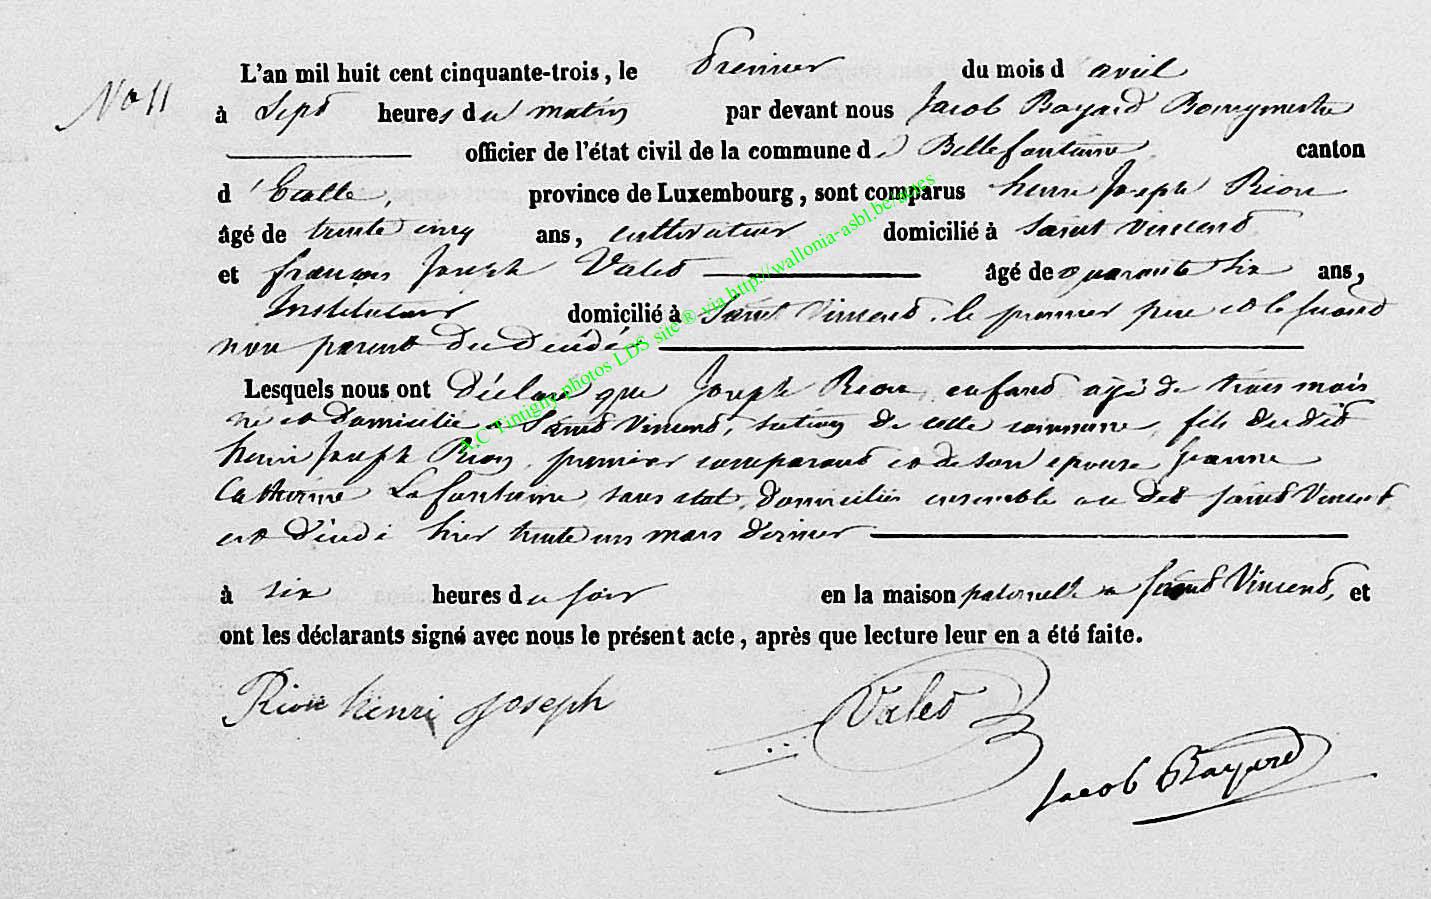 N° 11
L'an mil huit cent cinquante-trois, le Premier du mois d avril
à Sept heures du matin par devant nous Jacob Bayard Bourgmestre
officier de l'état civil de la commune de Bellefontaine canton
d'Etalle, province de Luxembourg, sont comparus henri Joseph Rion
âgé de trente cinq ans, cultivateur domicilié à Saint Vincent
et françois Joseph Valet âgé de quarante six ans,
Instituteur domicilié à Saint Vincent, le premier père et le second
non parent du décédé
Lesquels nous ont Déclaré que Joseph Rion, enfant âgé de trois mois
né et domicilié à Saint Vincent, section de cette commune, fils dudit
henri Joseph Rion, premier comparant et de son épouse Jeanne
Catherine Lafontaine, sans état, domiciliés ensemble au dit Saint Vincent
est décédé hier trente un mars dernier
à six heures du soir en la maison paternelle à Saint Vincent, et
ont les déclarants signé avec nous le présent acte, après que lecture leur en a été faite.
Rion henri Joseph
Valet
Jacob Bayard
A.C Tintigny photos LDS site® via http://wallonia-asbl.be/actes